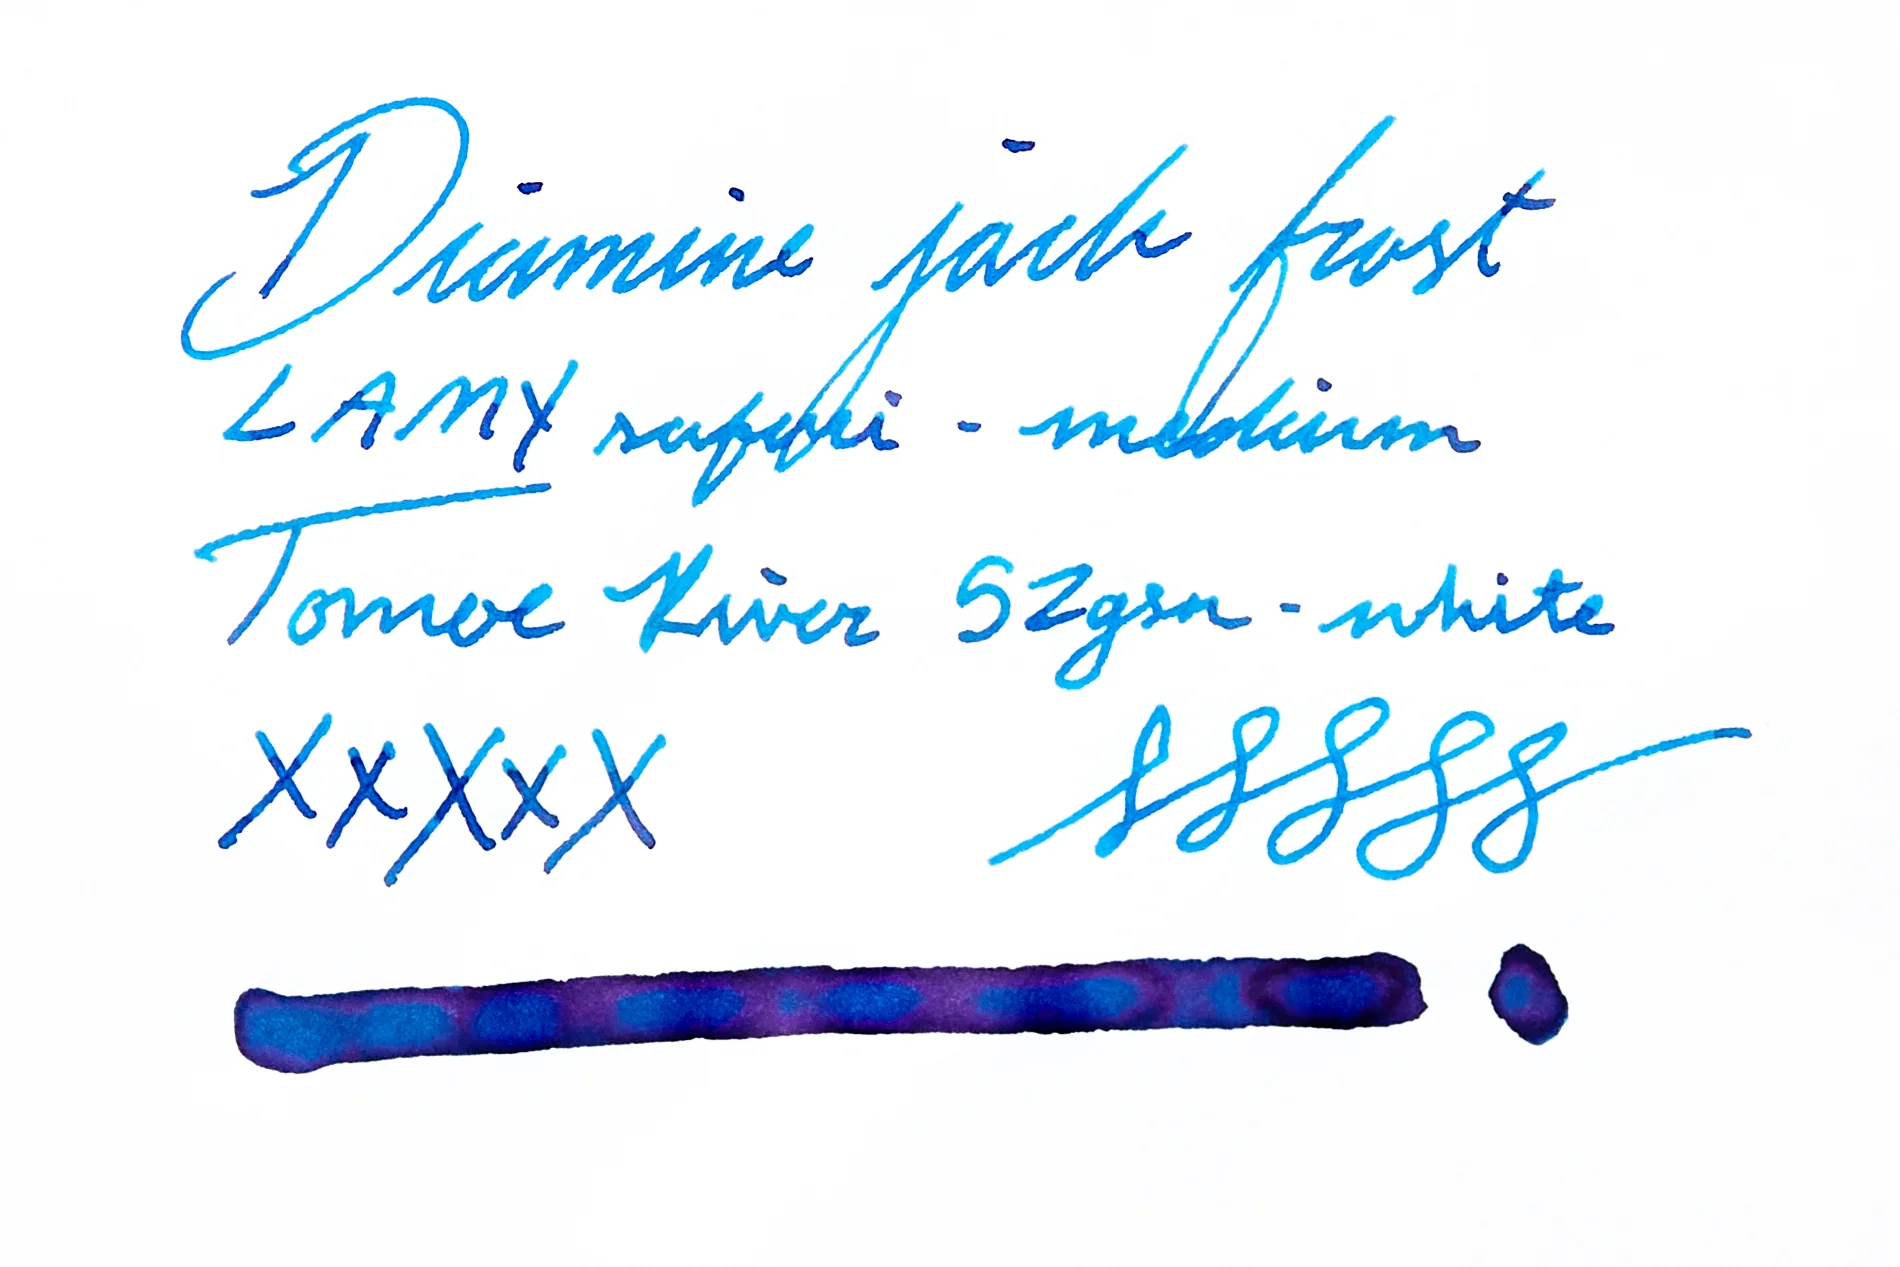 Diamine jack frost
LAMY safari - medium
Tomoe River 52gsm - white
XxXxX